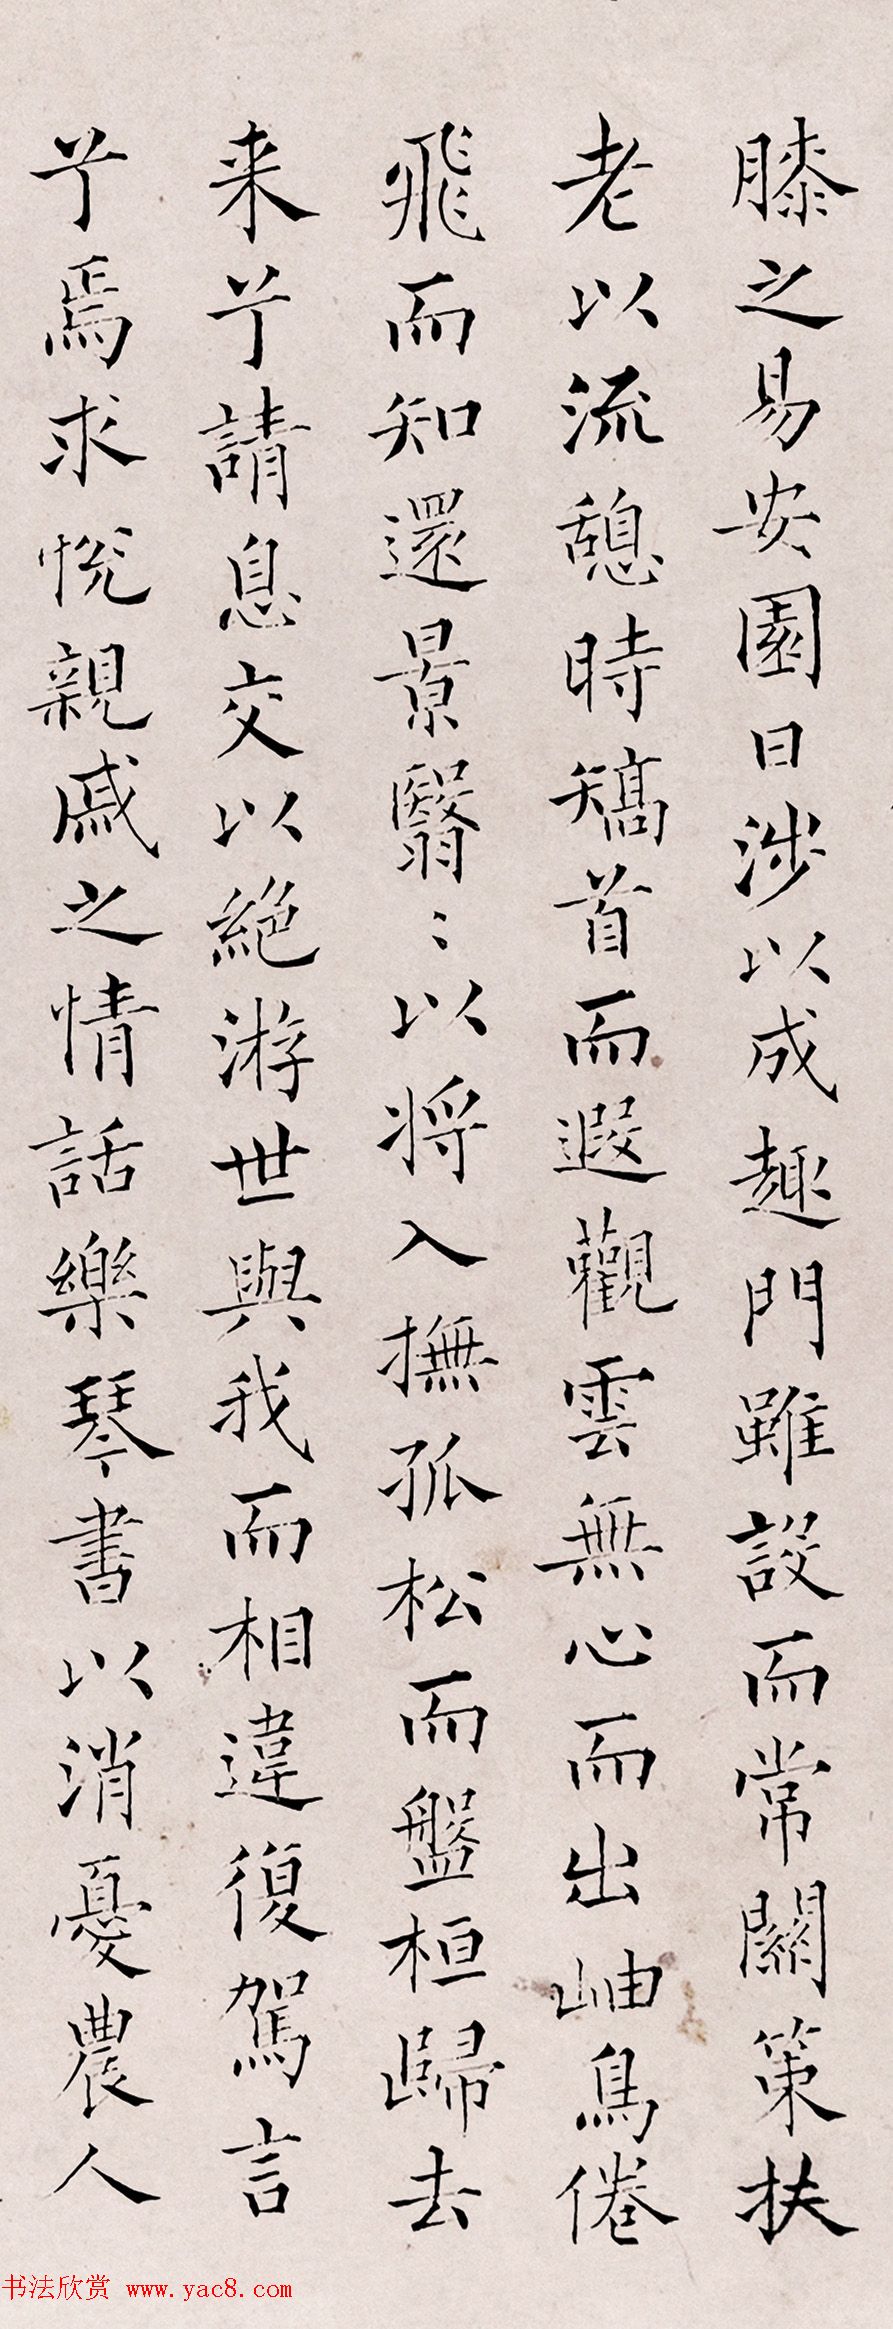 膝之易安園日涉以成趣門雖設而常關策扶
老以流憩時矯首而遐觀雲無心而出岫鳥倦
飛而知還景翳〻以將入撫孤松而盤桓歸去
来兮請息交以絕游世與我而相違復駕言
兮焉求悅親戚之情話樂琴書以消憂農人
书法欣赏 www.yac8.com